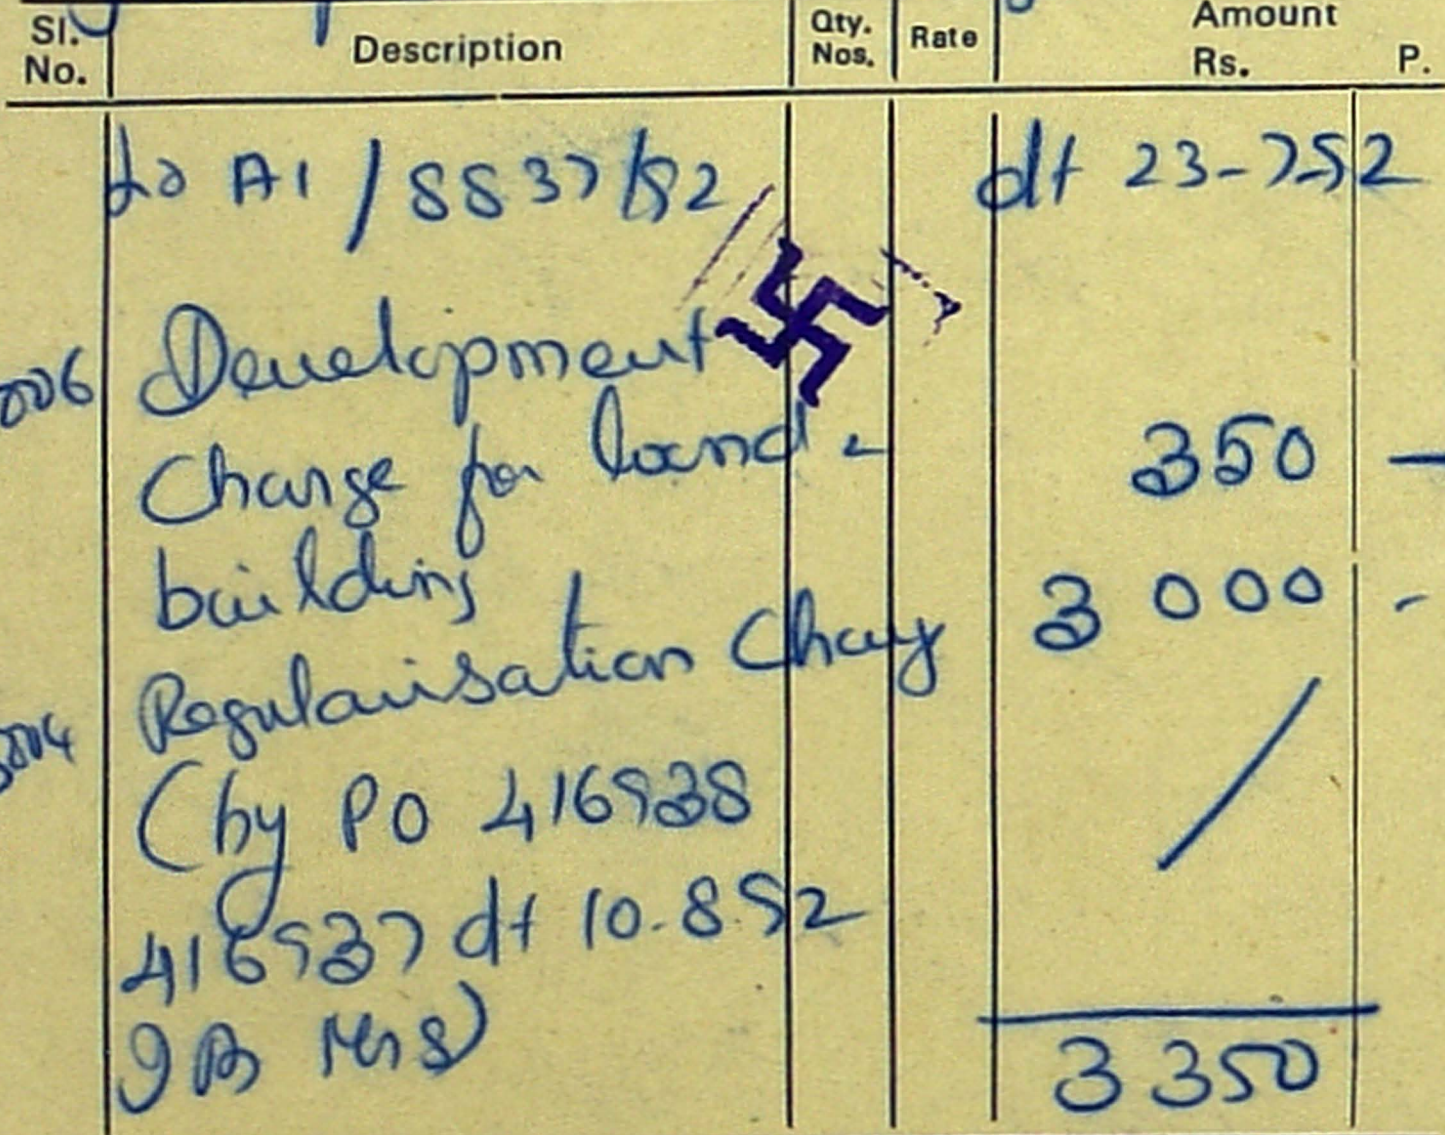 Sl. No. Description Qty. Nos. Rate Amount Rs. P.
A1 / 8837/92 dt 23-7-92
Development
Charge for land - 350 -
building
3000 -
Regularisation Charg
(by PO 416938
416937 dt 10.8.92
3350